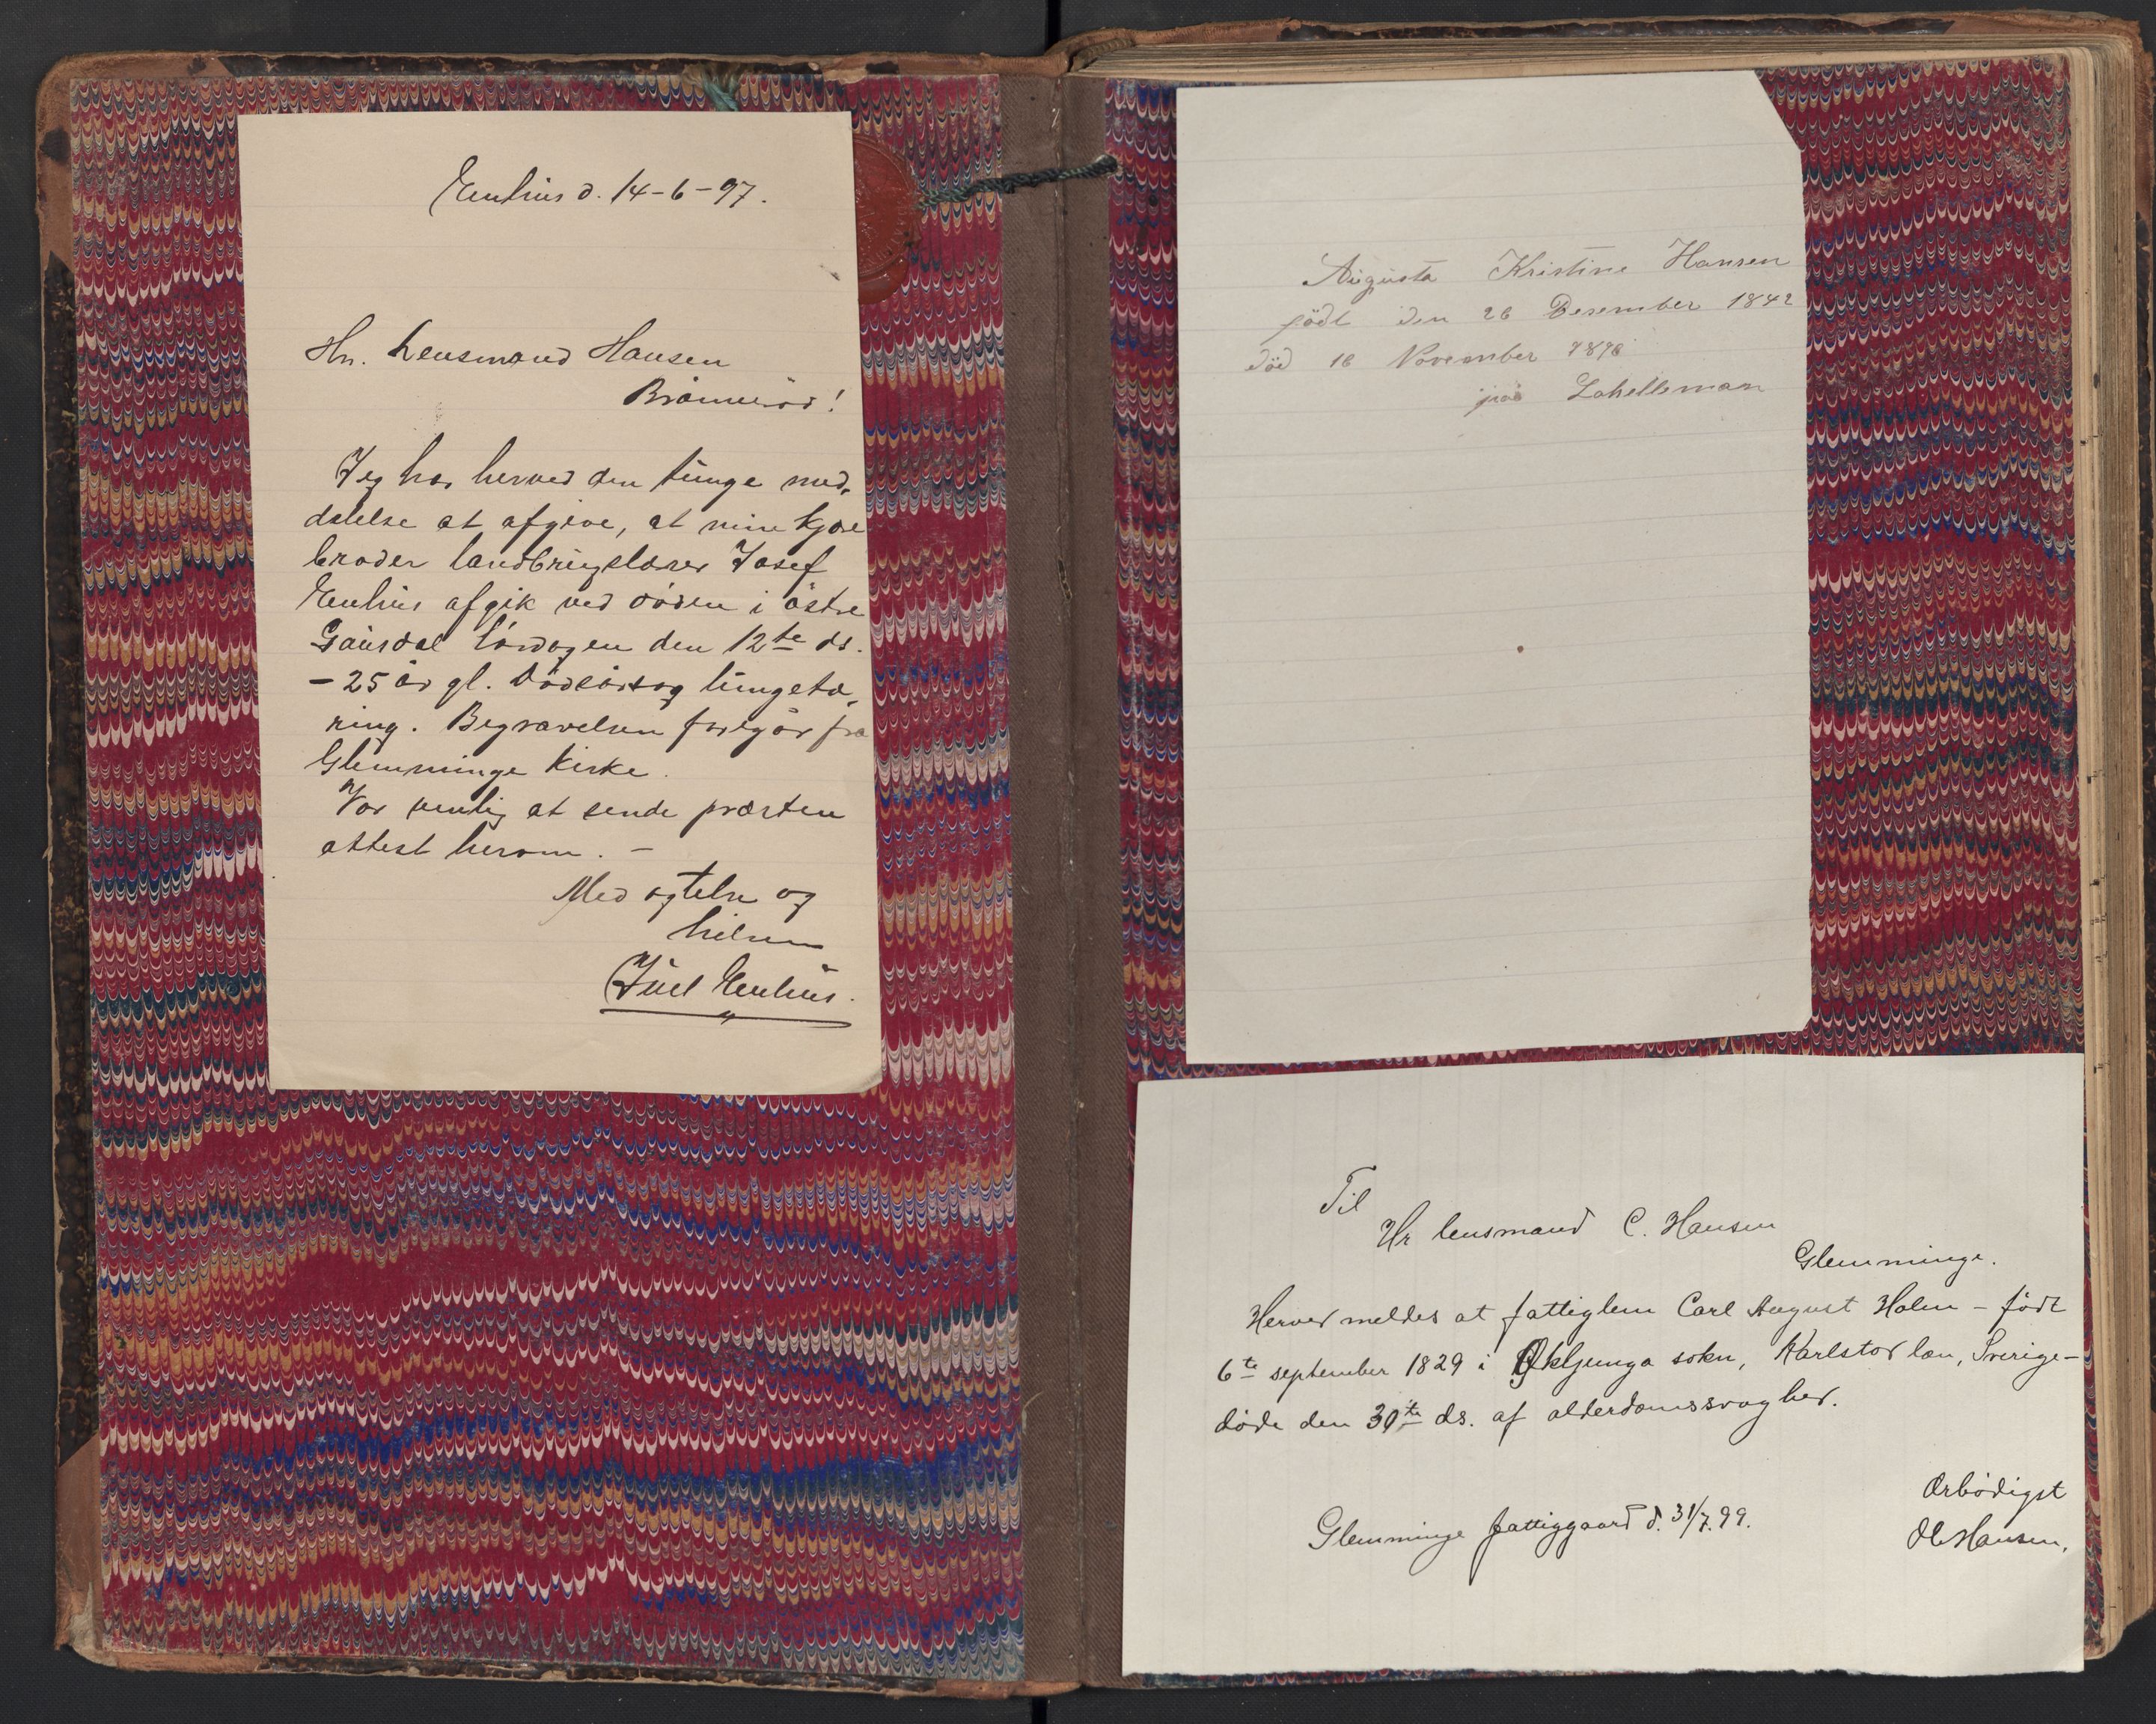 Enhus d. 14-6-97.
Hr. Lensmand Hansen
Brønnerød!
Jeg har herved den tunge med-
delelse at afgive, at min kjære
broder landbrugslærer Josef
Enhus afgik ved døden i østre
Gausdal lørdagen den 12te ds.
- 25 år gl. Dødsårsag lungetæ-
ring. Begravelsen foregår fra
Glemminge kirke.
Vær venlig at sende præsten
attest herom. -
Med agtelse og
hilsen
Juel Enhus.
Augusta Kristine Hansen
födt den 26 Desember 1842
död 16 November 1898
paa Lahelleman
Til
Hr lensmand C. Hansen
Glemminge.
Herved meldes at fattiglem Carl August Holm - født
6te september 1829 i sokn, Karlstad læn, Sverige -
døde den 30te ds. af alderdomssvaghed.
Ærbødigst
Glemminge fattiggaard d. 31/7.99.
Ol. Hansen.